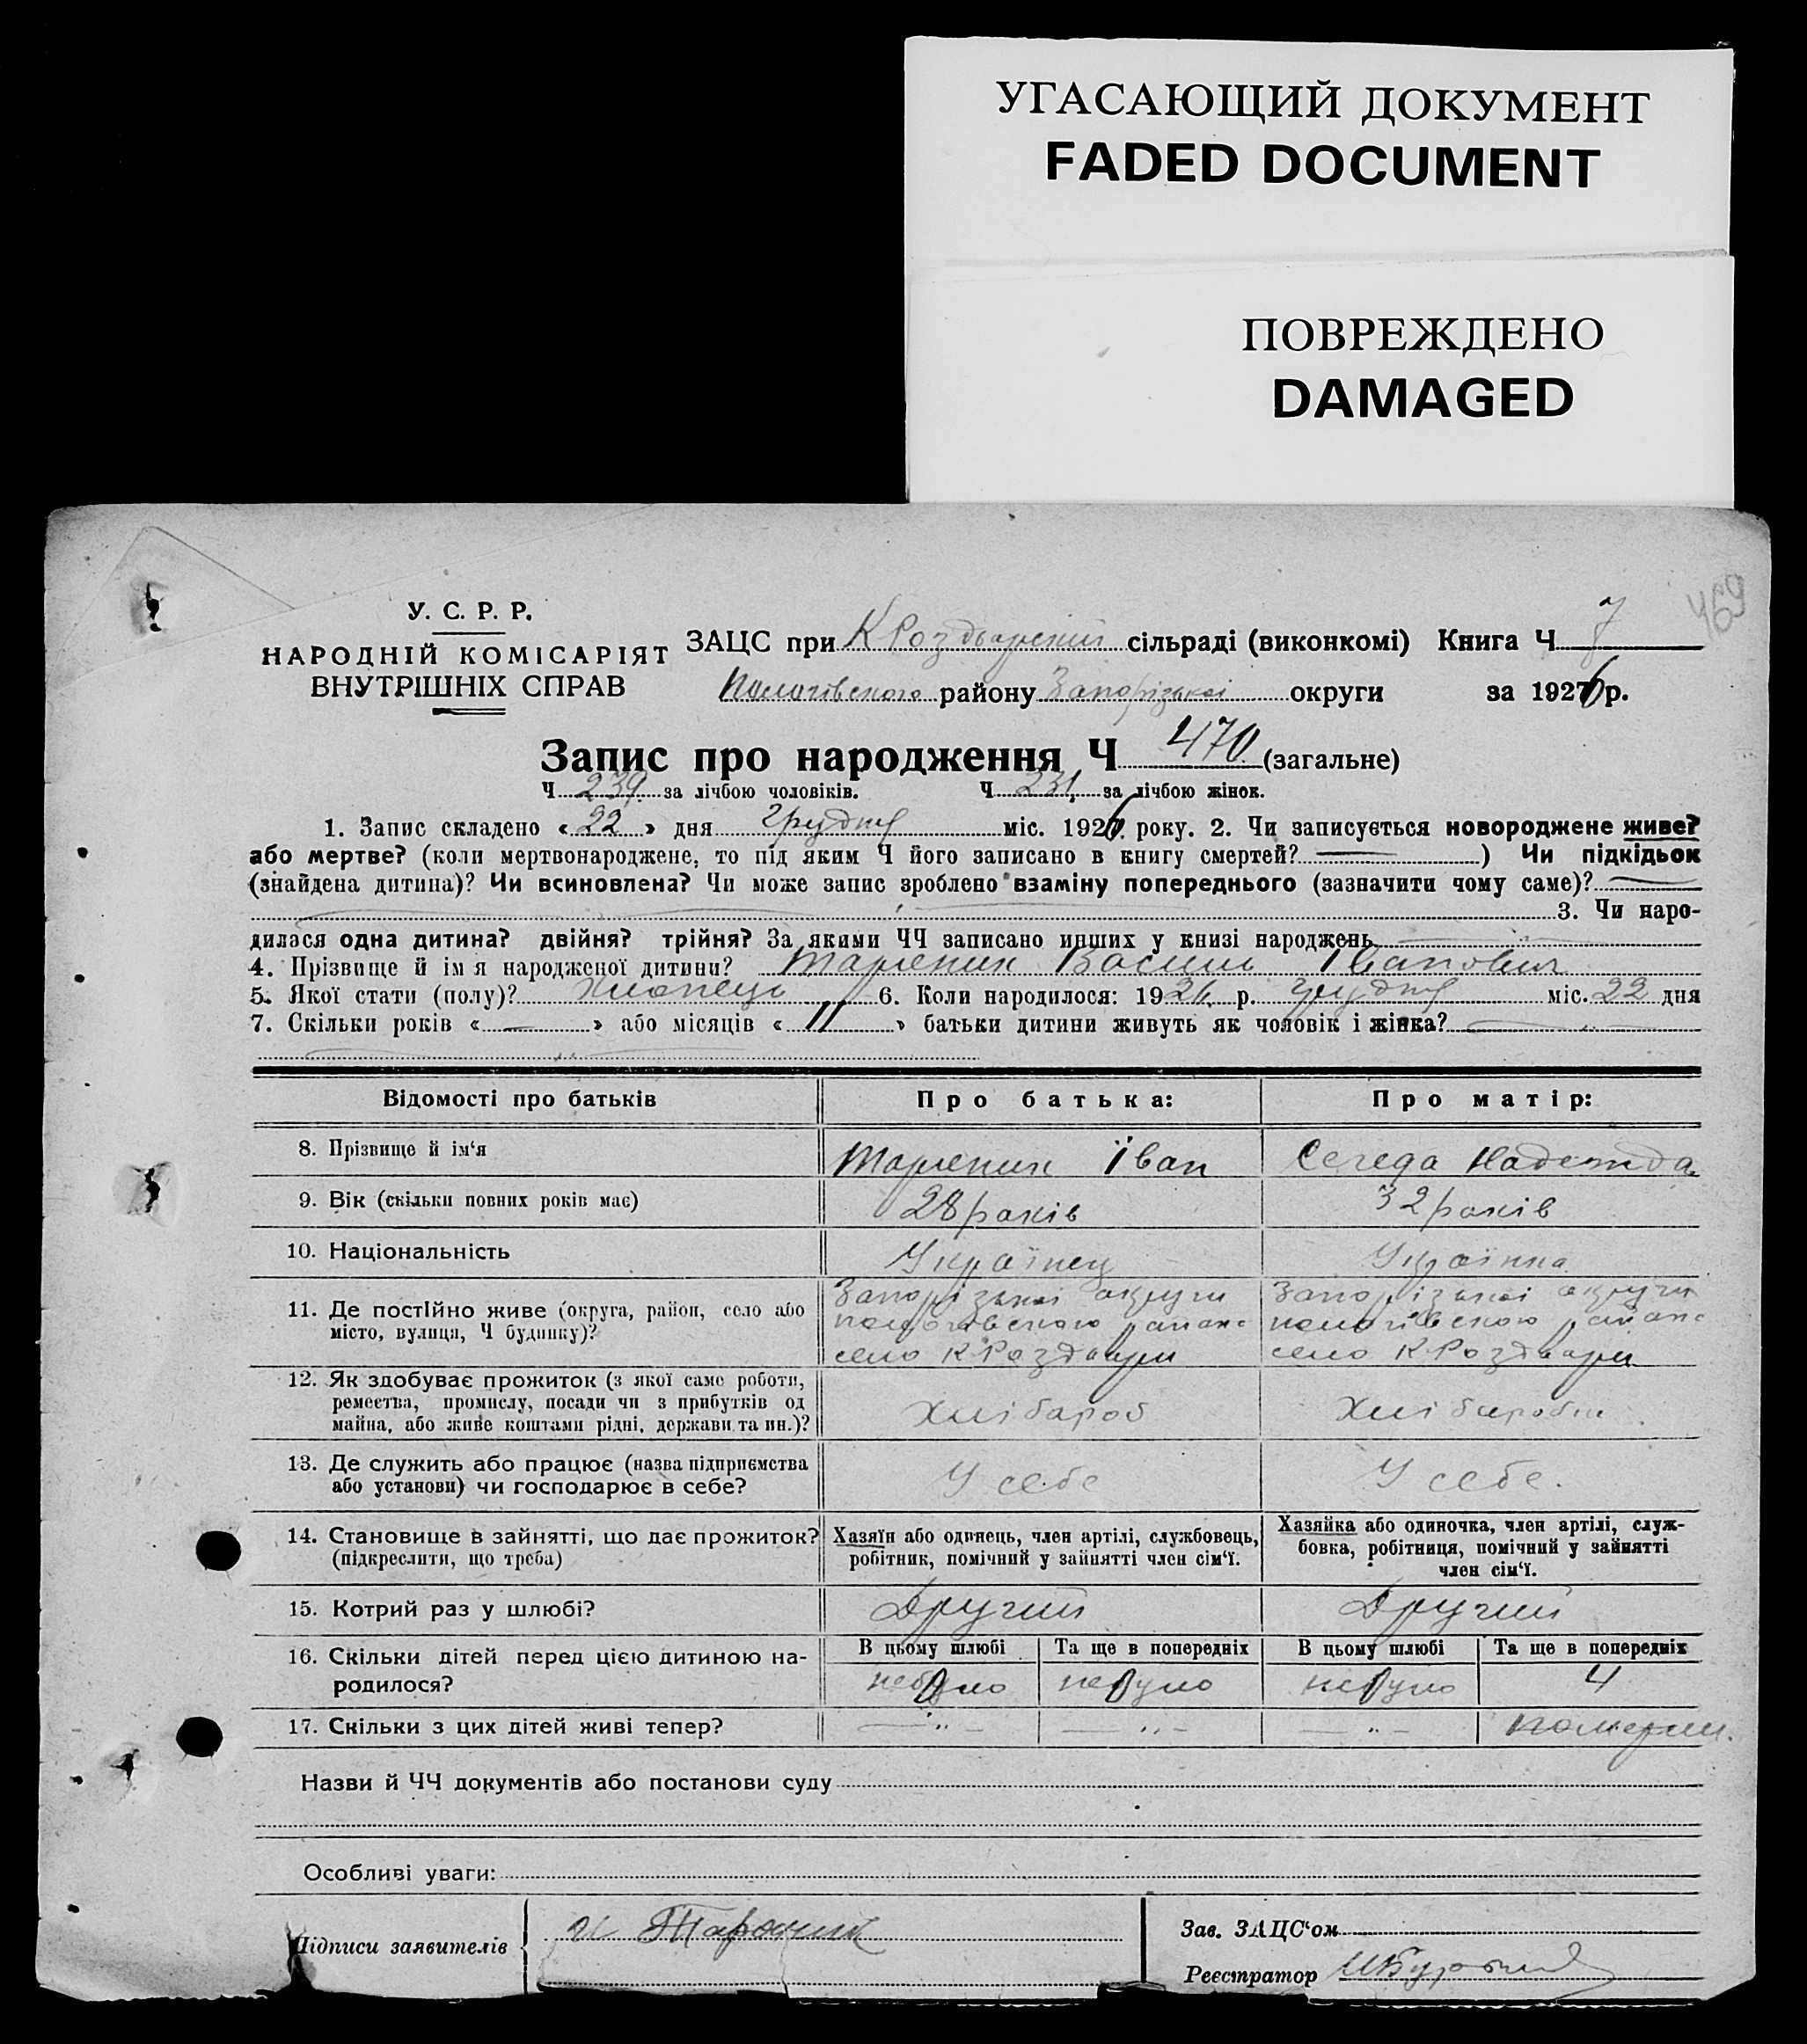 УГАСАЮЩИЙ ДОКУМЕНТ
FADED DOCUMENT
ПОВРЕЖДЕНО
DAMAGED
469
У. С. Р. Р.
НАРОДНІЙ КОМІСАРІЯТ
ВНУТРІШНІХ СПРАВ
ЗАЦС при К Роздорский сільраді (виконкомі) Книга Ч 7
Пологівського району Запорізької округи за 1926 р.
Запис про народження Ч 470 (загальне)
Ч 239 за лічбою чоловіків. Ч 231 за лічбою жінок.
1. Запис складено « 22 » дня грудня міс. 1926 року. 2. Чи записується новороджене живе?
або мертве? (коли мертвонароджене, то під яким Ч його записано в книгу смертей? ) Чи підкідьок
(знайдена дитина)? Чи всиновлена? Чи може запис зроблено взаміну попереднього (зазначити чому саме)?
3. Чи наро-
дилася одна дитина? двійня? трійня? За якими ЧЧ записано инших у книзі народжень
4. Прізвище й імя народженої дитини? Василь Іванович
5. Якої стати (полу)? хлопець 6. Коли народилося: 1926 р. грудня міс. 22 дня
7. Скільки років « — » або місяців « 11 » батьки дитини живуть як чоловік і жінка?
Відомості про батьків Про батька: Про матір:
8. Прізвище й ім‘я Іван Середа Надежда
9. Вік (скільки повних років має) 28 років 32 років
10. Національність Українец Українка
11. Де постійно живе (округа, район, село або місто, вулиця, Ч будинку)?
Запорізької округи Запорізької округи
пологівского району пологівского району
село К Роздори село К Роздори
12. Як здобуває прожиток (з якої саме роботи,
ремества, промислу, посади чи з прибутків од
майна, або живе коштами рідні, держави та ин.)?
Хлібороб Хлібороби
13. Де служить або працює (назва підприємства
або установи) чи господарює в себе?
У себе У себе.
14. Становище в зайнятті, що дає прожиток?
(підкреслити, що треба)
Хазяїн або одинець, член артілі, службовець,
робітник, помічний у зайнятті член сім‘ї.
Хазяйка або одиночка, член артілі, служ-
бовка, робітниця, помічний у зайнятті
член сім‘ї.
15. Котрий раз у шлюбі? Другий Другий
16. Скільки дітей перед цією дитиною на-
родилося?
В цьому шлюбі Та ще в попередніх В цьому шлюбі Та ще в попередніх
небуло небуло небуло 4
17. Скільки з цих дітей живі тепер? — „ — — „ — — „ — померли.
Назви й ЧЧ документів або постанови суду
Особливі уваги:
Підписи заявителів
Зав. ЗАЦС‘ом
Реєстратор